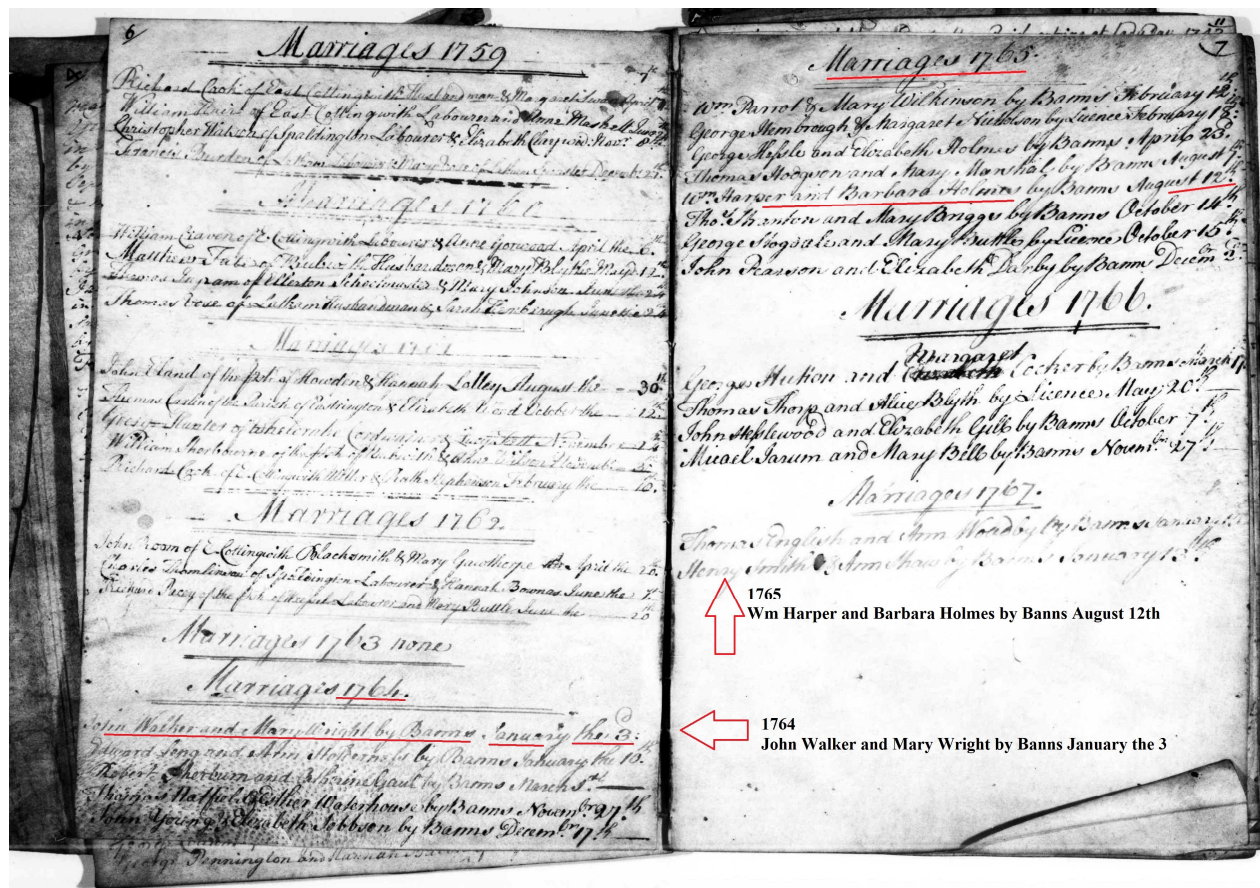 6
Marriages 1759
Richard Cock of East Cottingwith Husbandman & Margaret
William of East Cottingwith Labourer and Anne Maskell
Christopher Watson of Spaldington Labourer & Elizabeth Clay Novr 8th
Francis Burden of Lathom Labourer & Mary of Lathom Spinster December
Marriages 1760
William Craven of E Cottingwith Labourer & Anne Gorwood April the 6th
Matthew of Bubwith Husbandman & Mary Blythe May 12th
Thomas Ingram of Ellerton Schoolmaster & Mary Johnson June the 24
Thomas of Latham Husbandman & Sarah Hembrough June the 24
Marriages 1761
John Eland of the psh of Howden & Hannah Lolley August the 30th
Thomas of the Parish of Eastrington & Elizabeth Word October the 12th
Hunter of Cordwainer & Novembr
William Thorbourne of the psh of Bubwith & Wilson
Richard Cock of E. Cottingwith Miller & Ruth Stephenson February the 16.
Marriages 1762.
John of E Cottingwith Blacksmith & Mary Gawthorpe April the
Charles Tomlinson of Spaldington Labourer & Hannah Bownas June the 7th
Richard of the psh of Labourer and Mary Buttle June the 20th
Marriages 1763 none
Marriages 1764.
John Walker and Mary Wright by Banns January the 3d:
Edward Long and Ann Holderness by Banns January the 16.th
Robert Thorburn and Catherine Gaul by Banns March
Thomas Hatfield & Esther Waterhouse by Banns Novembr 27th
John Young & Elizabeth Jobbson by Banns Decembr 17th
George Pennington and Hannah
11
7
Marriages 1765.
Wm Parrot & Mary Wilkinson by Banns February 12th
George Hembrough & Margaret Nicholson by Licence February 18th
George Hessle and Elizabeth Holmes by Banns April 23.
Thomas Hodgson and Mary Marshal by Banns August 7th
Wm Harper and Barbara Holmes by Banns August 12th
Thos Stanton and Mary Briggs by Banns October 14th
George Hogdale and Mary Buttle by Licence October 15th
John Pearson and Elizabeth Darby by Banns Decembr 3d
Marriages 1766.
Margaret
George Hutton and Cocker by Banns March 17
Thomas Thorp and Alice Blyth by Licence May 20th
John Hesslewood and Elizabeth Gill by Banns October 7th
Micael Jarum and Mary Bell by Banns Novembr 27th
Marriages 1767.
Thomas English and Ann by Banns January
Henry Smith & Ann Shaw by Banns January 13th
1765
Wm Harper and Barbara Holmes by Banns August 12th
1764
John Walker and Mary Wright by Banns January the 3